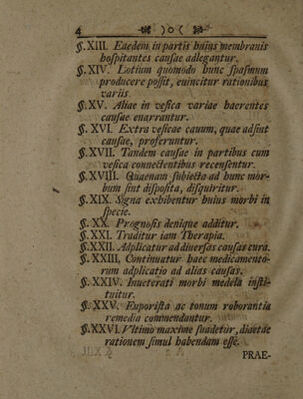 4 )o(
§. XIII. Eaedem in partis huius membranis
hospitantes causae adlegantur.
§. XIV. Lotium quomodo hunc spasmum
producere possit, euincitur rationibus
variis.
§. XV. Aliae in vesica variae haerentes
causae enarrantur.
§. XVI. Extra vesicae cauum, quae adsint
causae, proferuntur.
§. XVII. Tandem causae in partibus cum
vesica connectentibus recensentur.
§. XVIII. Quaenam subiecta ad hunc mor-
bum sint disposita, disquiritur.
§. XIX. Signa exhibentur huius morbi in
specie.
§. XX. Prognosis denique additur.
§. XXI. Traditur iam Therapia.
§. XXII. Adplicatur ad diuersas causas cura.
§. XXIII. Continuatur haec medicamento-
rum adplicatio ad alias causas.
§. XXIV. Inueterati morbi medela insti-
tuitur.
§. XXV. Euporista ac tonum roborantia
remedia commendantur.
§. XXVI. Vltimo maxime suadetur, diaetae
rationem simul habendam esse.
PRAE-